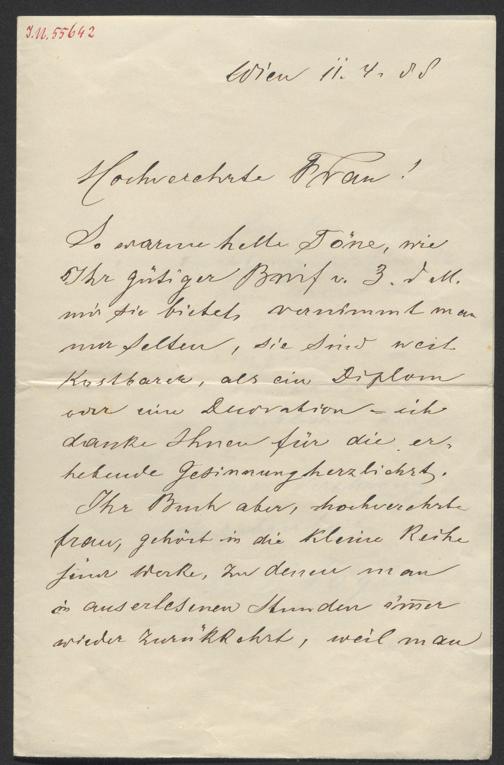 I.N. 55642
Wien 11. 4. 88
Hochverehrte Frau!
So warme helle Töne, wie
Ihr gütiger Brief v. 3. d M.
mir sie bietet, vernimmt man
nur selten, sie sind weit
kostbarer, als ein Diplom
oder eine Decoration – ich
danke Ihnen für die er-
hebende Gesinnung herzlichst.
Ihr Buch aber, hochverehrte
Frau, gehört in die kleine Reihe
jener Werke, zu denen man
in auserlesenen Stunden im̅er
wieder zurückkehrt, weil man